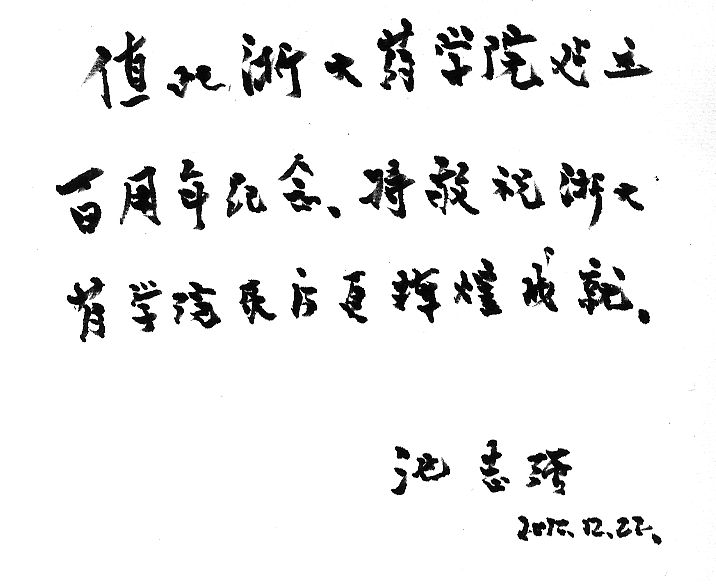 值此浙大药学院建立
百周年纪念、特敬祝浙大
药学院后更辉煌成就。
池志强
2012.12.22.